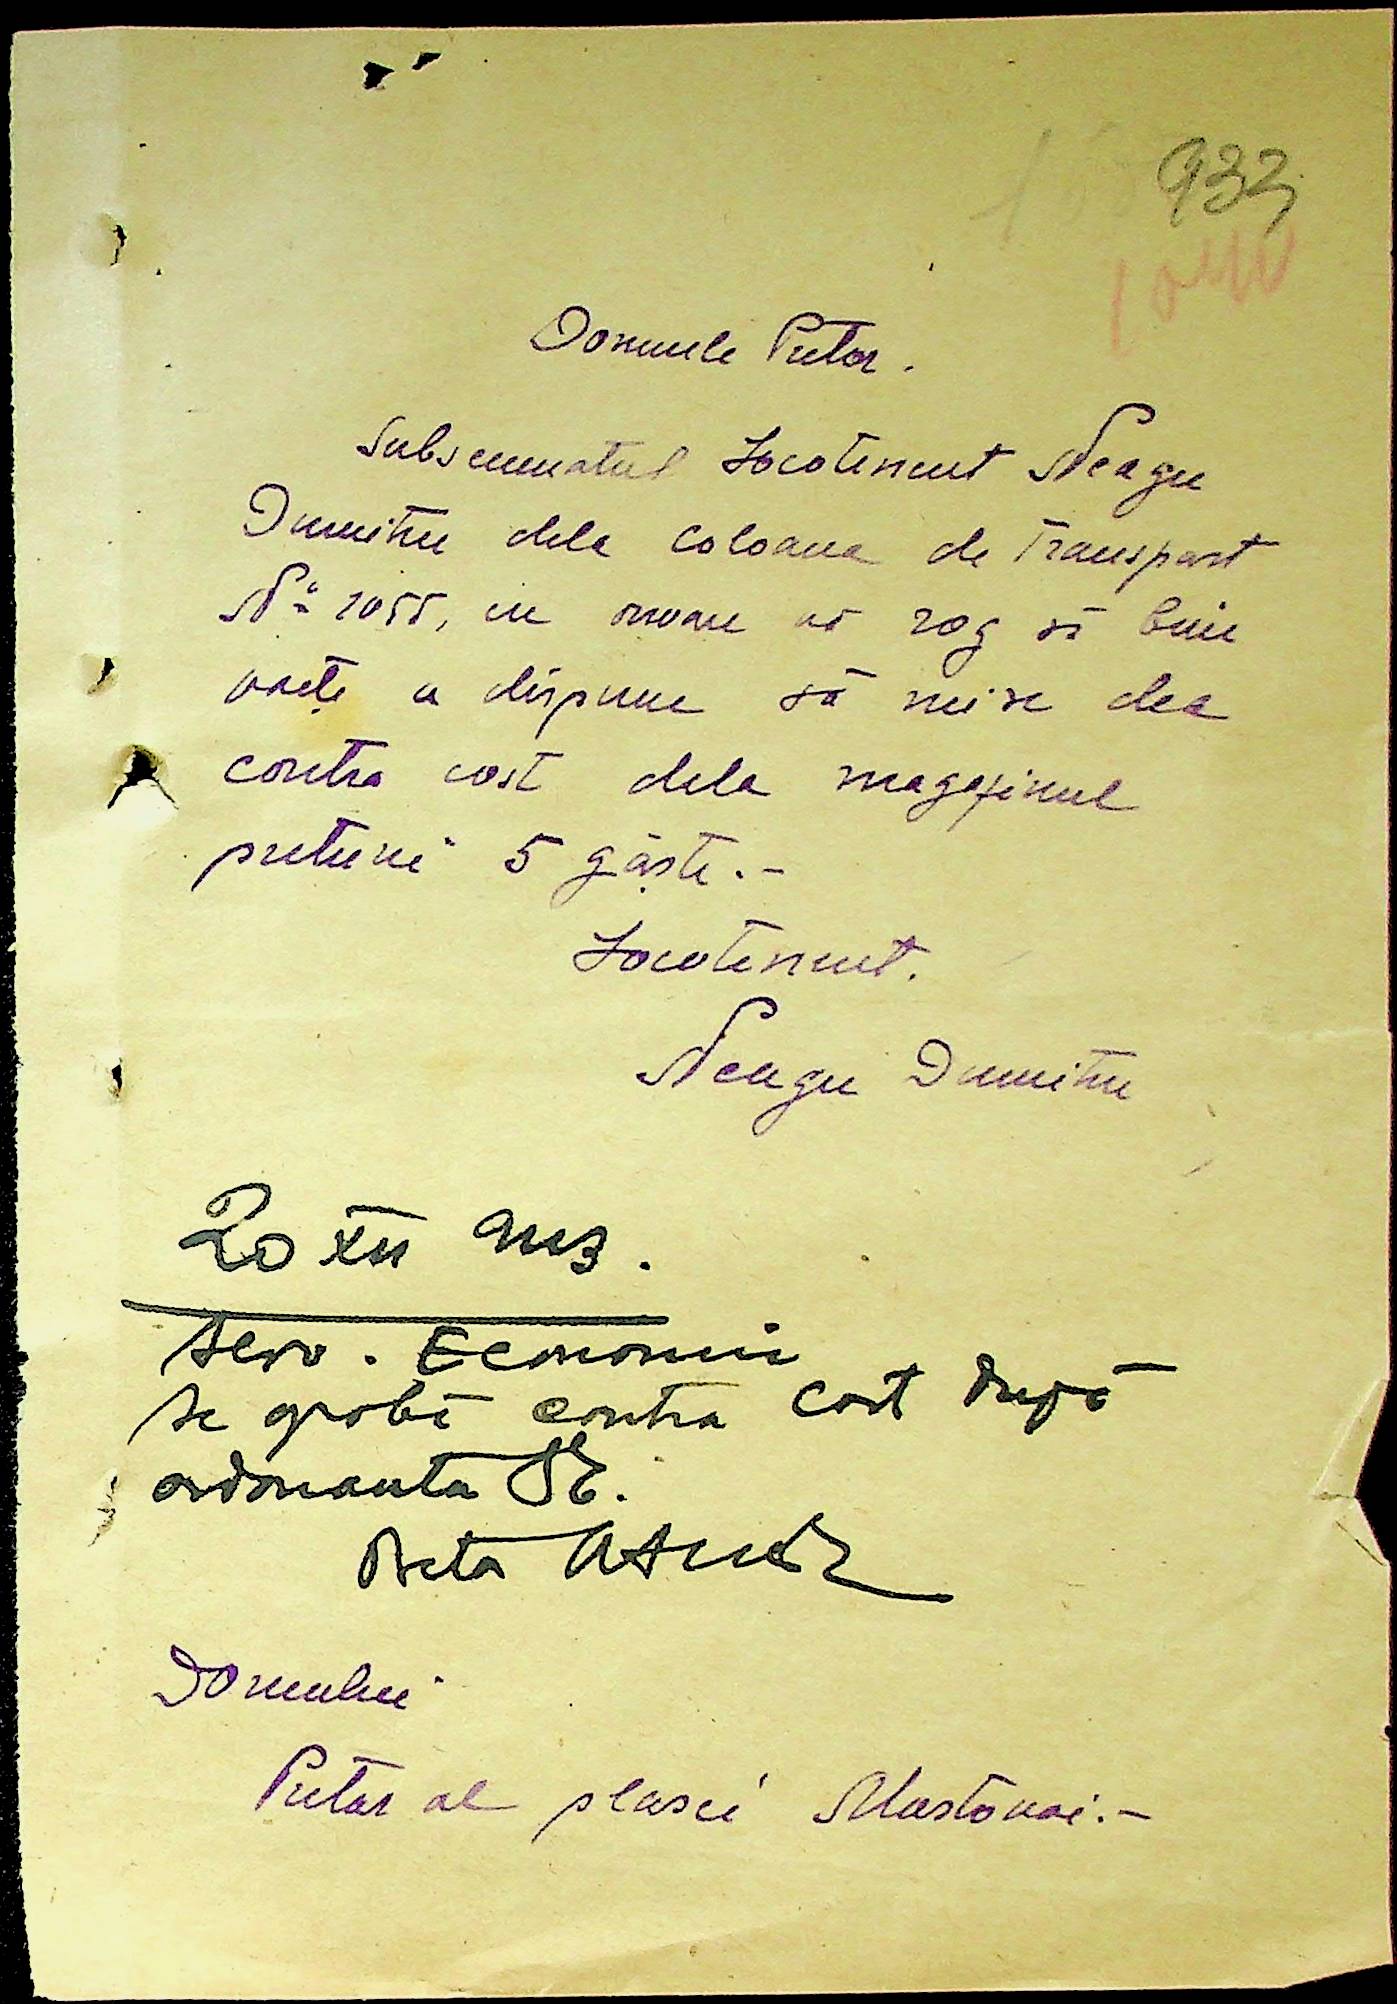 933
1040
Domnule Pretor.
Subsemnatul Locotenent Neagu
Dumitru dela coloana de Transport
No 1055, cu onoare vă rog să bine
voiți a dispune să mi se dea
contra cost dela magazinul
preturii 5 gâște.-
Locotenent.
Neagu Dumitru
20 XII 943.
Serv. Economic
Se aprobă contra cost după
ordonanta
Domnului
Pretor al plasii Mostovoi.-